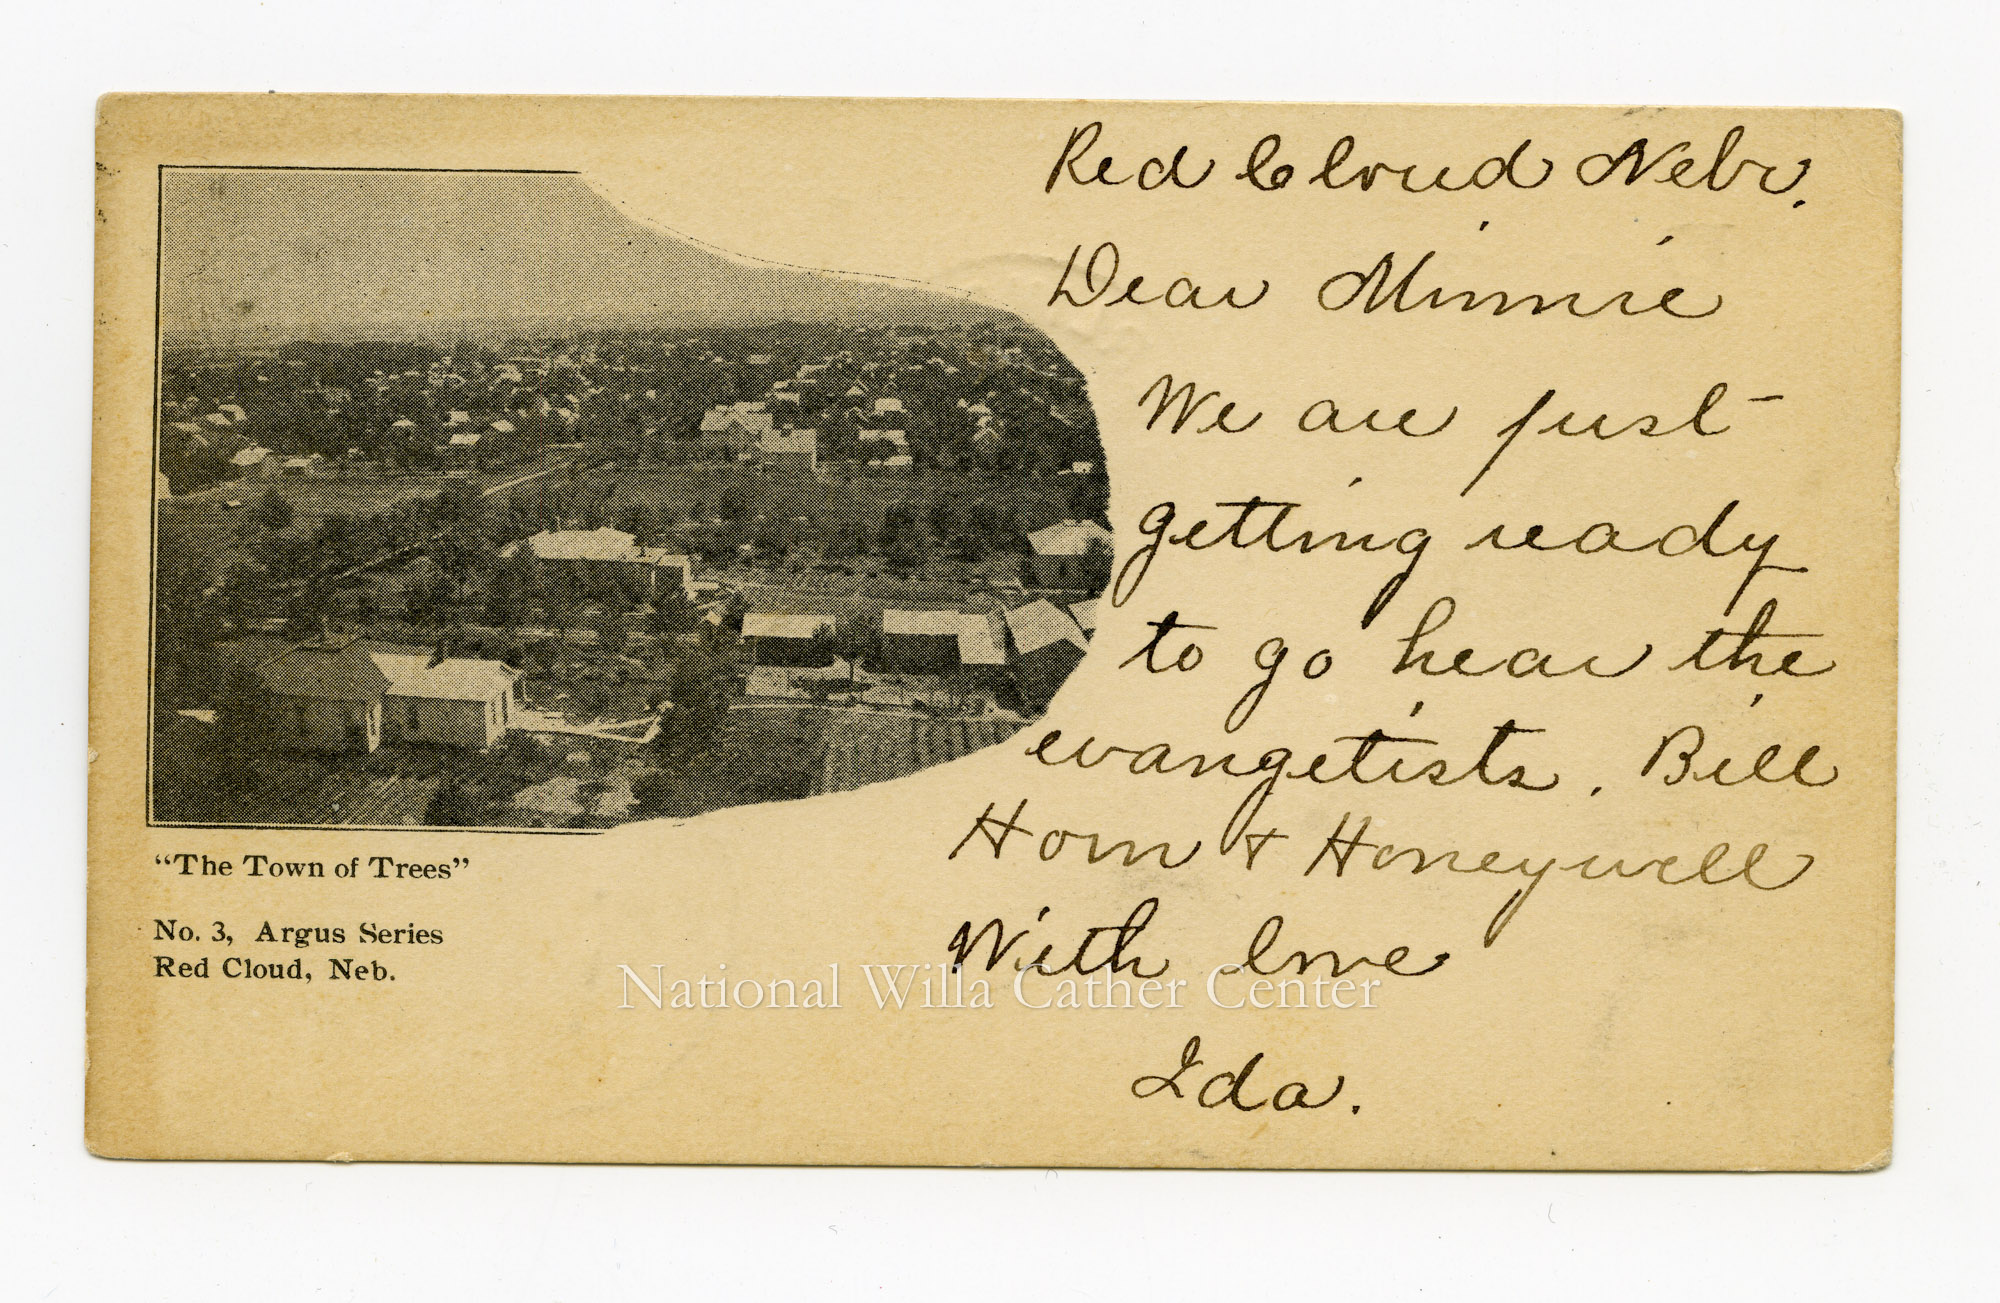 Red Cloud Nebr.
Dear Minnie
We are just
getting ready
to go hear the
evangetists. Bill
Horn & Honeywell
With love
Ida.
"The Town of Trees"
No. 3, Argus Series
Red Cloud, Neb.
National Willa Cather Center